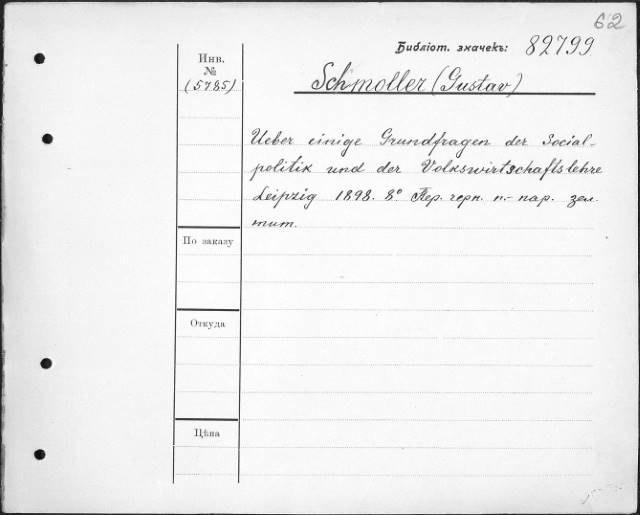 62
Библіот. значекъ: 82799
Инв.
№
(5785)
Schmoller (Gustav)
Ueber einige Grundfragen der Social-
politik und der Volkswirtschaftslehre
Leipzig 1898. 8° Пер. черн. п.- пар. зел.
тит.
По заказу
Откуда
Цѣна